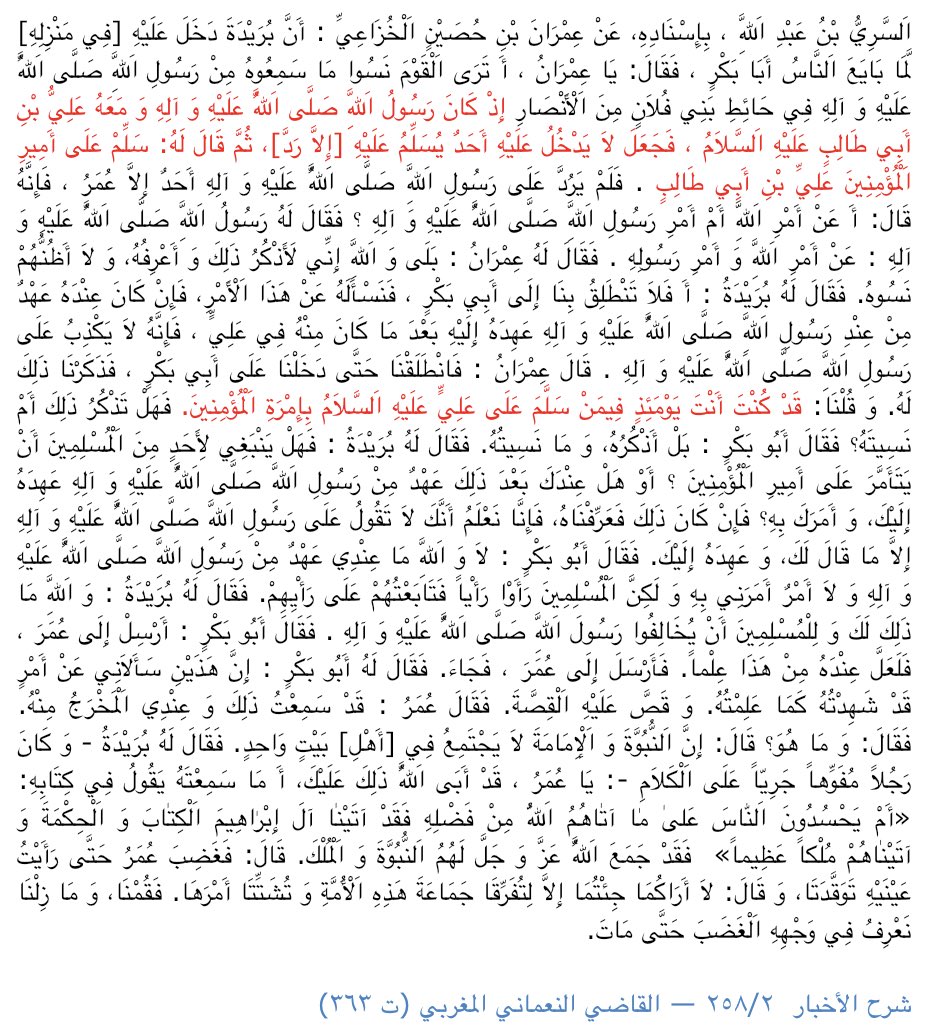 اَلسَّرِيُّ بْنُ عَبْدِ اَللَّهِ ، بِإِسْنَادِهِ، عَنْ عِمْرَانَ بْنِ حُصَيْنٍ اَلْخُزَاعِيِّ : أَنَّ بُرَيْدَةَ دَخَلَ عَلَيْهِ [فِي مَنْزِلِهِ]
لَمَّا بَايَعَ اَلنَّاسُ أَبَا بَكْرٍ ، فَقَالَ: يَا عِمْرَانُ ، أَ تَرَى اَلْقَوْمَ نَسُوا مَا سَمِعُوهُ مِنْ رَسُولِ اَللَّهِ صَلَّى اَللَّهُ
عَلَيْهِ وَ آلِهِ فِي حَائِطِ بَنِي فُلاَنٍ مِنَ اَلْأَنْصَارِ إِذْ كَانَ رَسُولُ اَللَّهِ صَلَّى اَللَّهُ عَلَيْهِ وَ آلِهِ وَ مَعَهُ عَلِيُّ بْنِ
أَبِي طَالِبٍ عَلَيْهِ اَلسَّلاَمُ ، فَجَعَلَ لاَ يَدْخُلُ عَلَيْهِ أَحَدٌ يُسَلِّمُ عَلَيْهِ [إِلاَّ رَدَّ]، ثُمَّ قَالَ لَهُ: سَلِّمْ عَلَى أَمِيرِ
اَلْمُؤْمِنِينَ عَلِيِّ بْنِ أَبِي طَالِبٍ . فَلَمْ يَرُدَّ عَلَى رَسُولِ اَللَّهِ صَلَّى اَللَّهُ عَلَيْهِ وَ آلِهِ أَحَدٌ إِلاَّ عُمَرُ ، فَإِنَّهُ
قَالَ: أَ عَنْ أَمْرِ اَللَّهِ أَمْ أَمْرِ رَسُولِ اَللَّهِ صَلَّى اَللَّهُ عَلَيْهِ وَ آلِهِ ؟ فَقَالَ لَهُ رَسُولُ اَللَّهِ صَلَّى اَللَّهُ عَلَيْهِ وَ
آلِهِ : عَنْ أَمْرِ اَللَّهِ وَ أَمْرِ رَسُولِهِ . فَقَالَ لَهُ عِمْرَانُ : بَلَى وَ اَللَّهِ إِنِّي لَأَذْكُرُ ذَلِكَ وَ أَعْرِفُهُ، وَ لاَ أَظُنُّهُمْ
نَسُوهُ. فَقَالَ لَهُ بُرَيْدَةُ : أَ فَلاَ تَنْطَلِقُ بِنَا إِلَى أَبِي بَكْرٍ ، فَنَسْأَلُهُ عَنْ هَذَا اَلْأَمْرِ، فَإِنْ كَانَ عِنْدَهُ عَهْدٌ
مِنْ عِنْدِ رَسُولِ اَللَّهِ صَلَّى اَللَّهُ عَلَيْهِ وَ آلِهِ عَهِدَهُ إِلَيْهِ بَعْدَ مَا كَانَ مِنْهُ فِي عَلِيٍّ ، فَإِنَّهُ لاَ يَكْذِبُ عَلَى
رَسُولِ اَللَّهِ صَلَّى اَللَّهُ عَلَيْهِ وَ آلِهِ . قَالَ عِمْرَانُ : فَانْطَلَقْنَا حَتَّى دَخَلْنَا عَلَى أَبِي بَكْرٍ ، فَذَكَرْنَا ذَلِكَ
لَهُ. وَ قُلْنَا: قَدْ كُنْتَ أَنْتَ يَوْمَئِذٍ فِيمَنْ سَلَّمَ عَلَى عَلِيٍّ عَلَيْهِ اَلسَّلاَمُ بِإِمْرَةِ اَلْمُؤْمِنِينَ. فَهَلْ تَذْكُرُ ذَلِكَ أَمْ
نَسِيتَهُ؟ فَقَالَ أَبُو بَكْرٍ : بَلْ أَذْكُرُهُ، وَ مَا نَسِيتُهُ. فَقَالَ لَهُ بُرَيْدَةُ : فَهَلْ يَنْبَغِي لِأَحَدٍ مِنَ اَلْمُسْلِمِينَ أَنْ
يَتَأَمَّرَ عَلَى أَمِيرِ اَلْمُؤْمِنِينَ ؟ أَوْ هَلْ عِنْدَكَ بَعْدَ ذَلِكَ عَهْدٌ مِنْ رَسُولِ اَللَّهِ صَلَّى اَللَّهُ عَلَيْهِ وَ آلِهِ عَهِدَهُ
إِلَيْكَ، وَ أَمَرَكَ بِهِ؟ فَإِنْ كَانَ ذَلِكَ فَعَرِّفْنَاهُ، فَإِنَّا نَعْلَمُ أَنَّكَ لاَ تَقُولُ عَلَى رَسُولِ اَللَّهِ صَلَّى اَللَّهُ عَلَيْهِ وَ آلِهِ
إِلاَّ مَا قَالَ لَكَ، وَ عَهِدَهُ إِلَيْكَ. فَقَالَ أَبُو بَكْرٍ : لاَ وَ اَللَّهِ مَا عِنْدِي عَهْدٌ مِنْ رَسُولِ اَللَّهِ صَلَّى اَللَّهُ عَلَيْهِ
وَ آلِهِ وَ لاَ أَمْرٌ أَمَرَنِي بِهِ وَ لَكِنَّ اَلْمُسْلِمِينَ رَأَوْا رَأْياً فَتَابَعْتُهُمْ عَلَى رَأْيِهِمْ. فَقَالَ لَهُ بُرَيْدَةُ : وَ اَللَّهِ مَا
ذَلِكَ لَكَ وَ لِلْمُسْلِمِينَ أَنْ يُخَالِفُوا رَسُولَ اَللَّهِ صَلَّى اَللَّهُ عَلَيْهِ وَ آلِهِ . فَقَالَ أَبُو بَكْرٍ : أَرْسِلْ إِلَى عُمَرَ ،
فَلَعَلَّ عِنْدَهُ مِنْ هَذَا عِلْماً. فَأَرْسَلَ إِلَى عُمَرَ ، فَجَاءَ. فَقَالَ لَهُ أَبُو بَكْرٍ : إِنَّ هَذَيْنِ سَأَلاَنِي عَنْ أَمْرٍ
قَدْ شَهِدْتُهُ كَمَا عَلِمْتُهُ. وَ قَصَّ عَلَيْهِ اَلْقِصَّةَ. فَقَالَ عُمَرُ : قَدْ سَمِعْتُ ذَلِكَ وَ عِنْدِي اَلْمَخْرَجُ مِنْهُ.
فَقَالَ: وَ مَا هُوَ؟ قَالَ: إِنَّ اَلنُّبُوَّةَ وَ اَلْإِمَامَةَ لاَ يَجْتَمِعُ فِي [أَهْلِ] بَيْتٍ وَاحِدٍ. فَقَالَ لَهُ بُرَيْدَةُ - وَ كَانَ
رَجُلاً مُفَوِّهاً جَرِيّاً عَلَى اَلْكَلاَمِ -: يَا عُمَرُ ، قَدْ أَبَى اَللَّهُ ذَلِكَ عَلَيْكَ، أَ مَا سَمِعْتَهُ يَقُولُ فِي كِتَابِهِ:
«أَمْ يَحْسُدُونَ اَلنَّاسَ عَلىٰ مٰا آتٰاهُمُ اَللّٰهُ مِنْ فَضْلِهِ فَقَدْ آتَيْنٰا آلَ إِبْرٰاهِيمَ اَلْكِتٰابَ وَ اَلْحِكْمَةَ وَ
آتَيْنٰاهُمْ مُلْكاً عَظِيماً» فَقَدْ جَمَعَ اَللَّهُ عَزَّ وَ جَلَّ لَهُمُ اَلنُّبُوَّةَ وَ اَلْمُلْكَ. قَالَ: فَغَضِبَ عُمَرُ حَتَّى رَأَيْتُ
عَيْنَيْهِ تَوَقَّدَتَا، وَ قَالَ: لاَ أَرَاكُمَا جِئْتُمَا إِلاَّ لِتُفَرِّقَا جَمَاعَةَ هَذِهِ اَلْأُمَّةِ وَ تُشَتِّتَا أَمْرَهَا. فَقُمْنَا، وَ مَا زِلْنَا
نَعْرِفُ فِي وَجْهِهِ اَلْغَضَبَ حَتَّى مَاتَ.
شرح الأخبار ٢٥٨/٢ — القاضي النعماني المغربي (ت ٣٦٣)